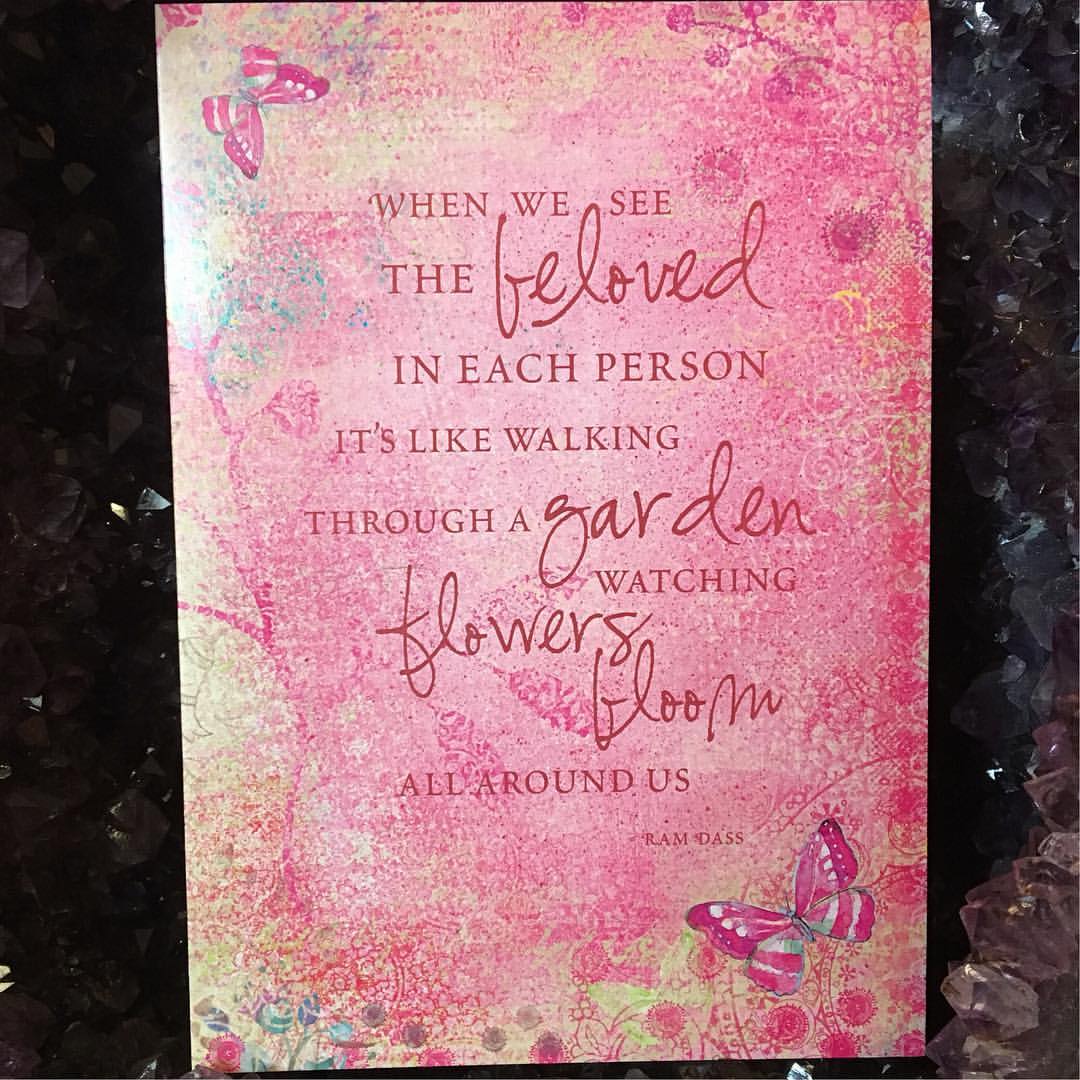 WHEN WE SEE
THE beloved
IN EACH PERSON
IT'S LIKE WALKING
THROUGH A garden
WATCHING
flowers
bloom
ALL AROUND US
RAM DASS